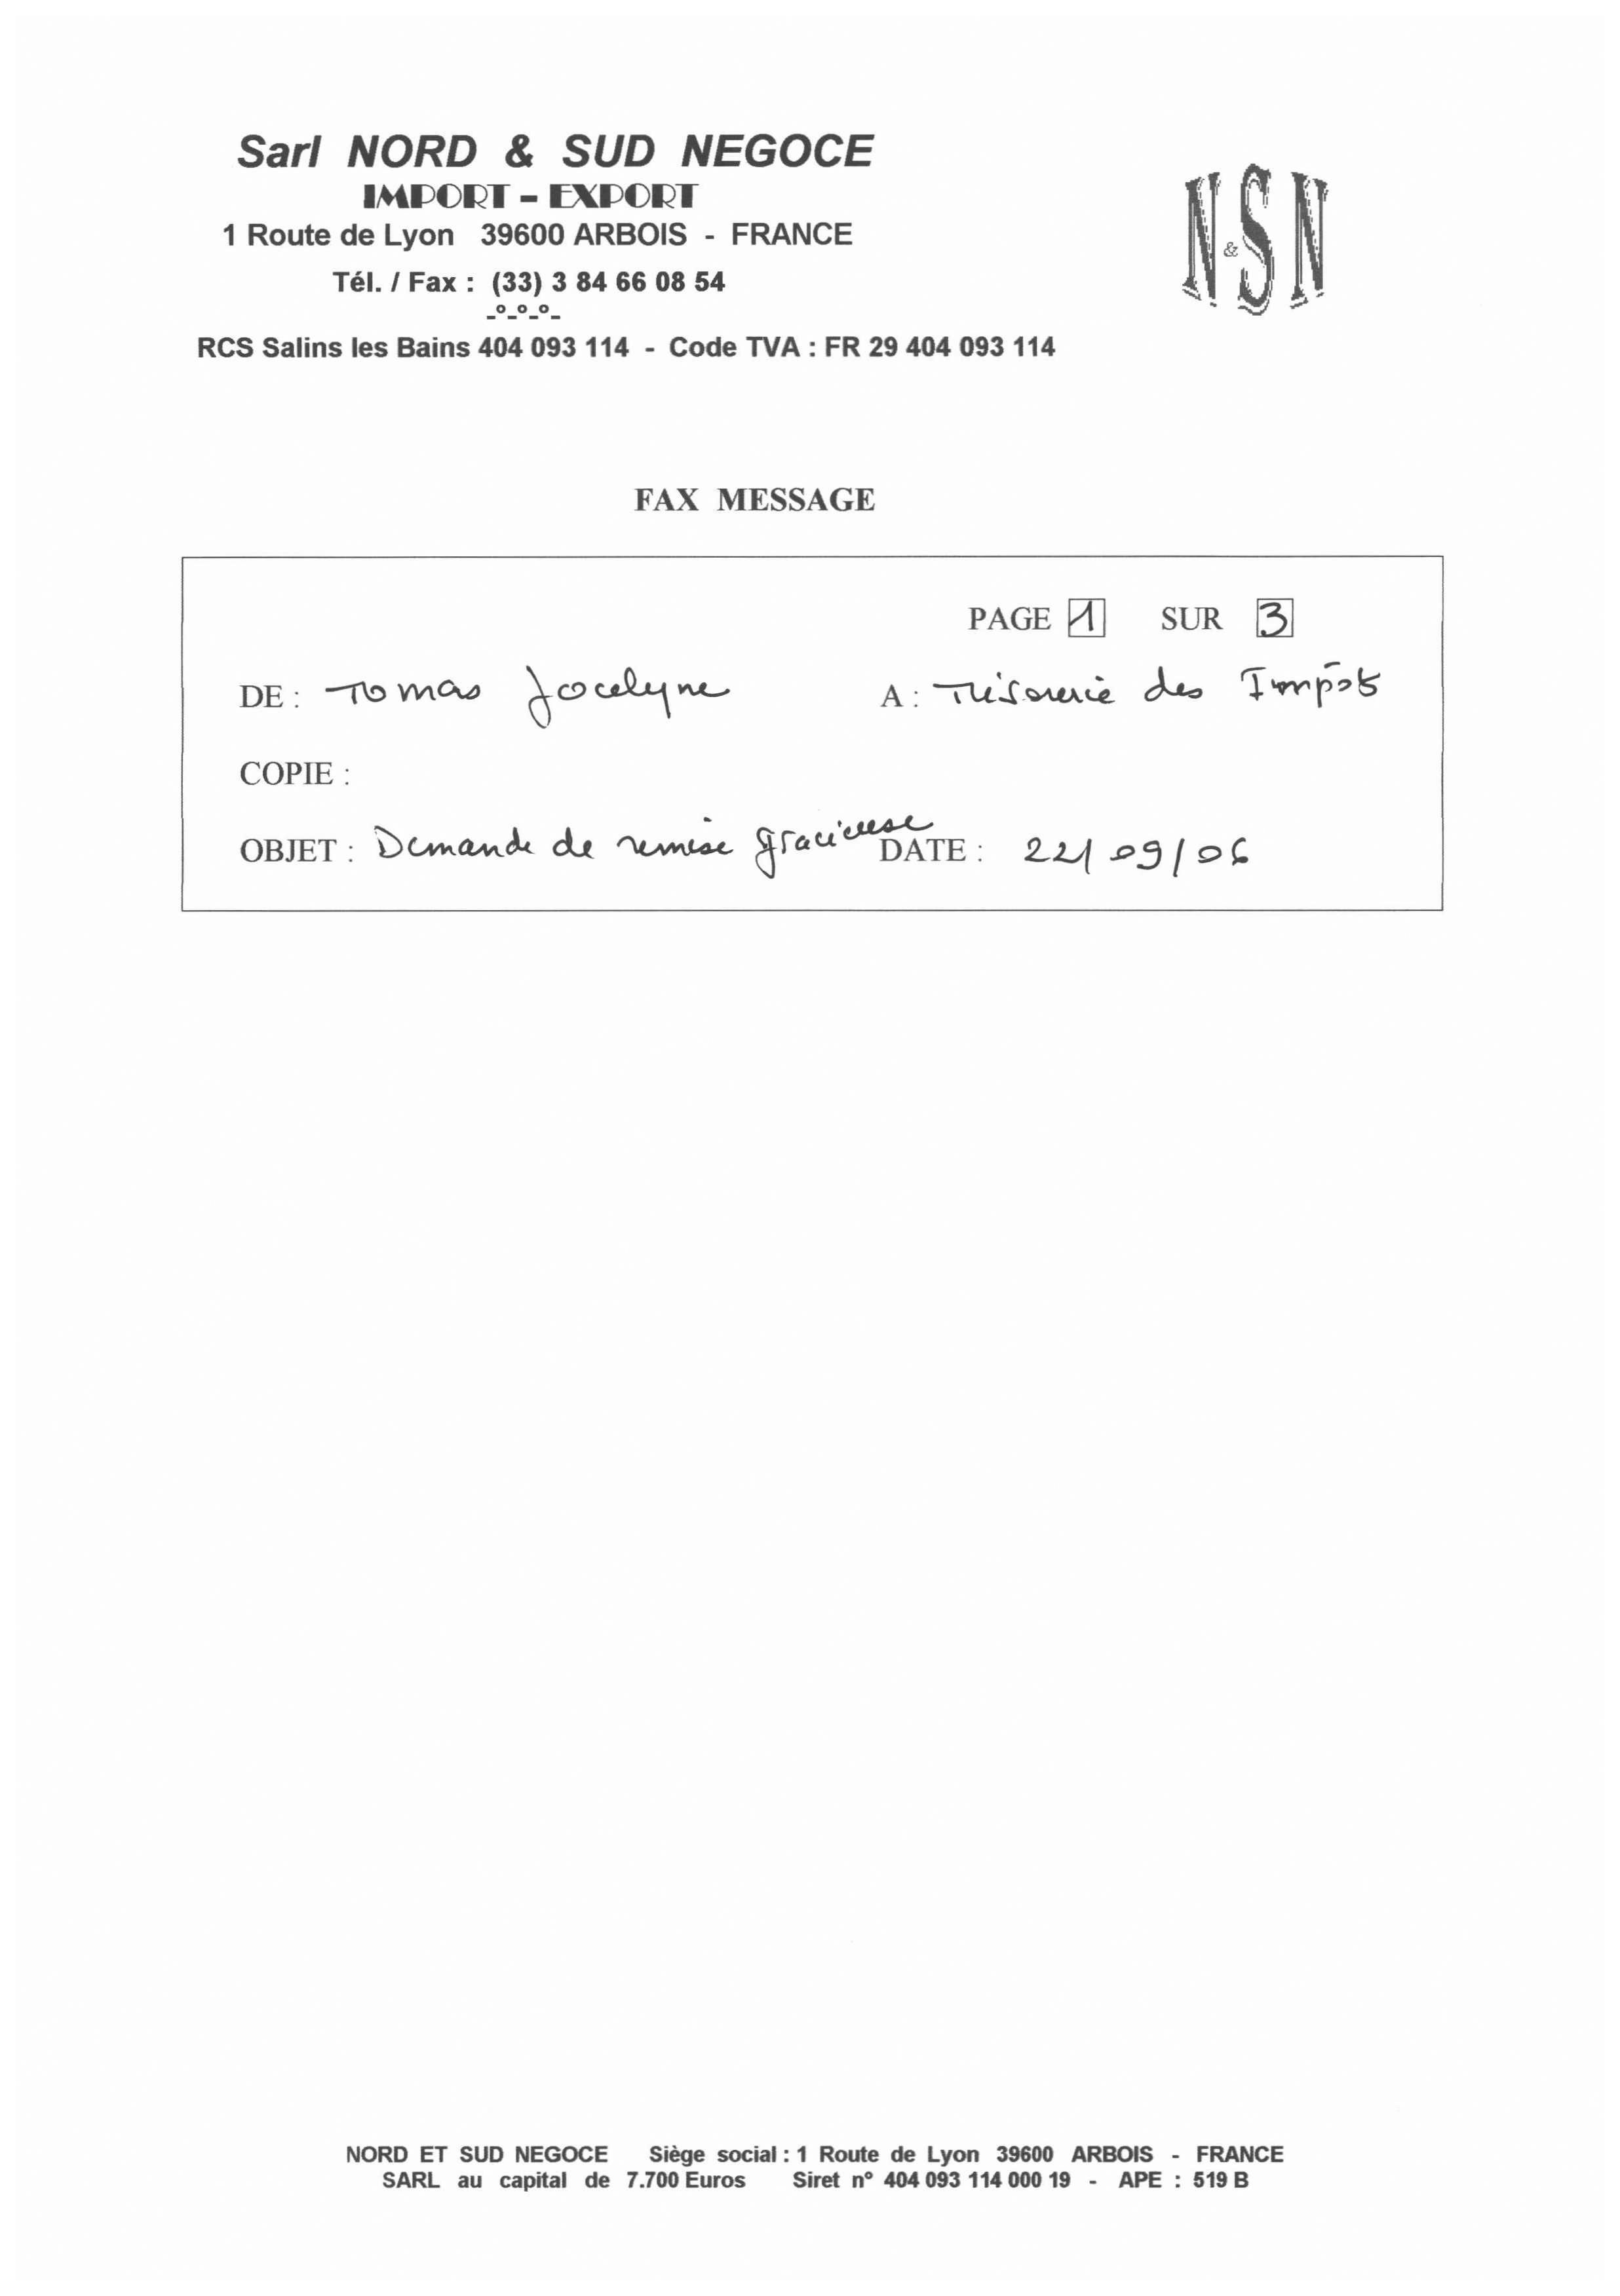 Sarl NORD & SUD NEGOCE
IMPORT - EXPORT
1 Route de Lyon 39600 ARBOIS - FRANCE
Tél. / Fax : (33) 3 84 66 08 54
-°-°-°-
RCS Salins les Bains 404 093 114 - Code TVA : FR 29 404 093 114
N&SN
FAX MESSAGE
PAGE 1 SUR 3
DE : Tomas Jocelyne A : Trésorerie des Impôts
COPIE :
OBJET : Demande de remise gracieuse DATE : 22/09/06
NORD ET SUD NEGOCE Siège social : 1 Route de Lyon 39600 ARBOIS - FRANCE
SARL au capital de 7.700 Euros Siret n° 404 093 114 000 19 - APE : 519 B